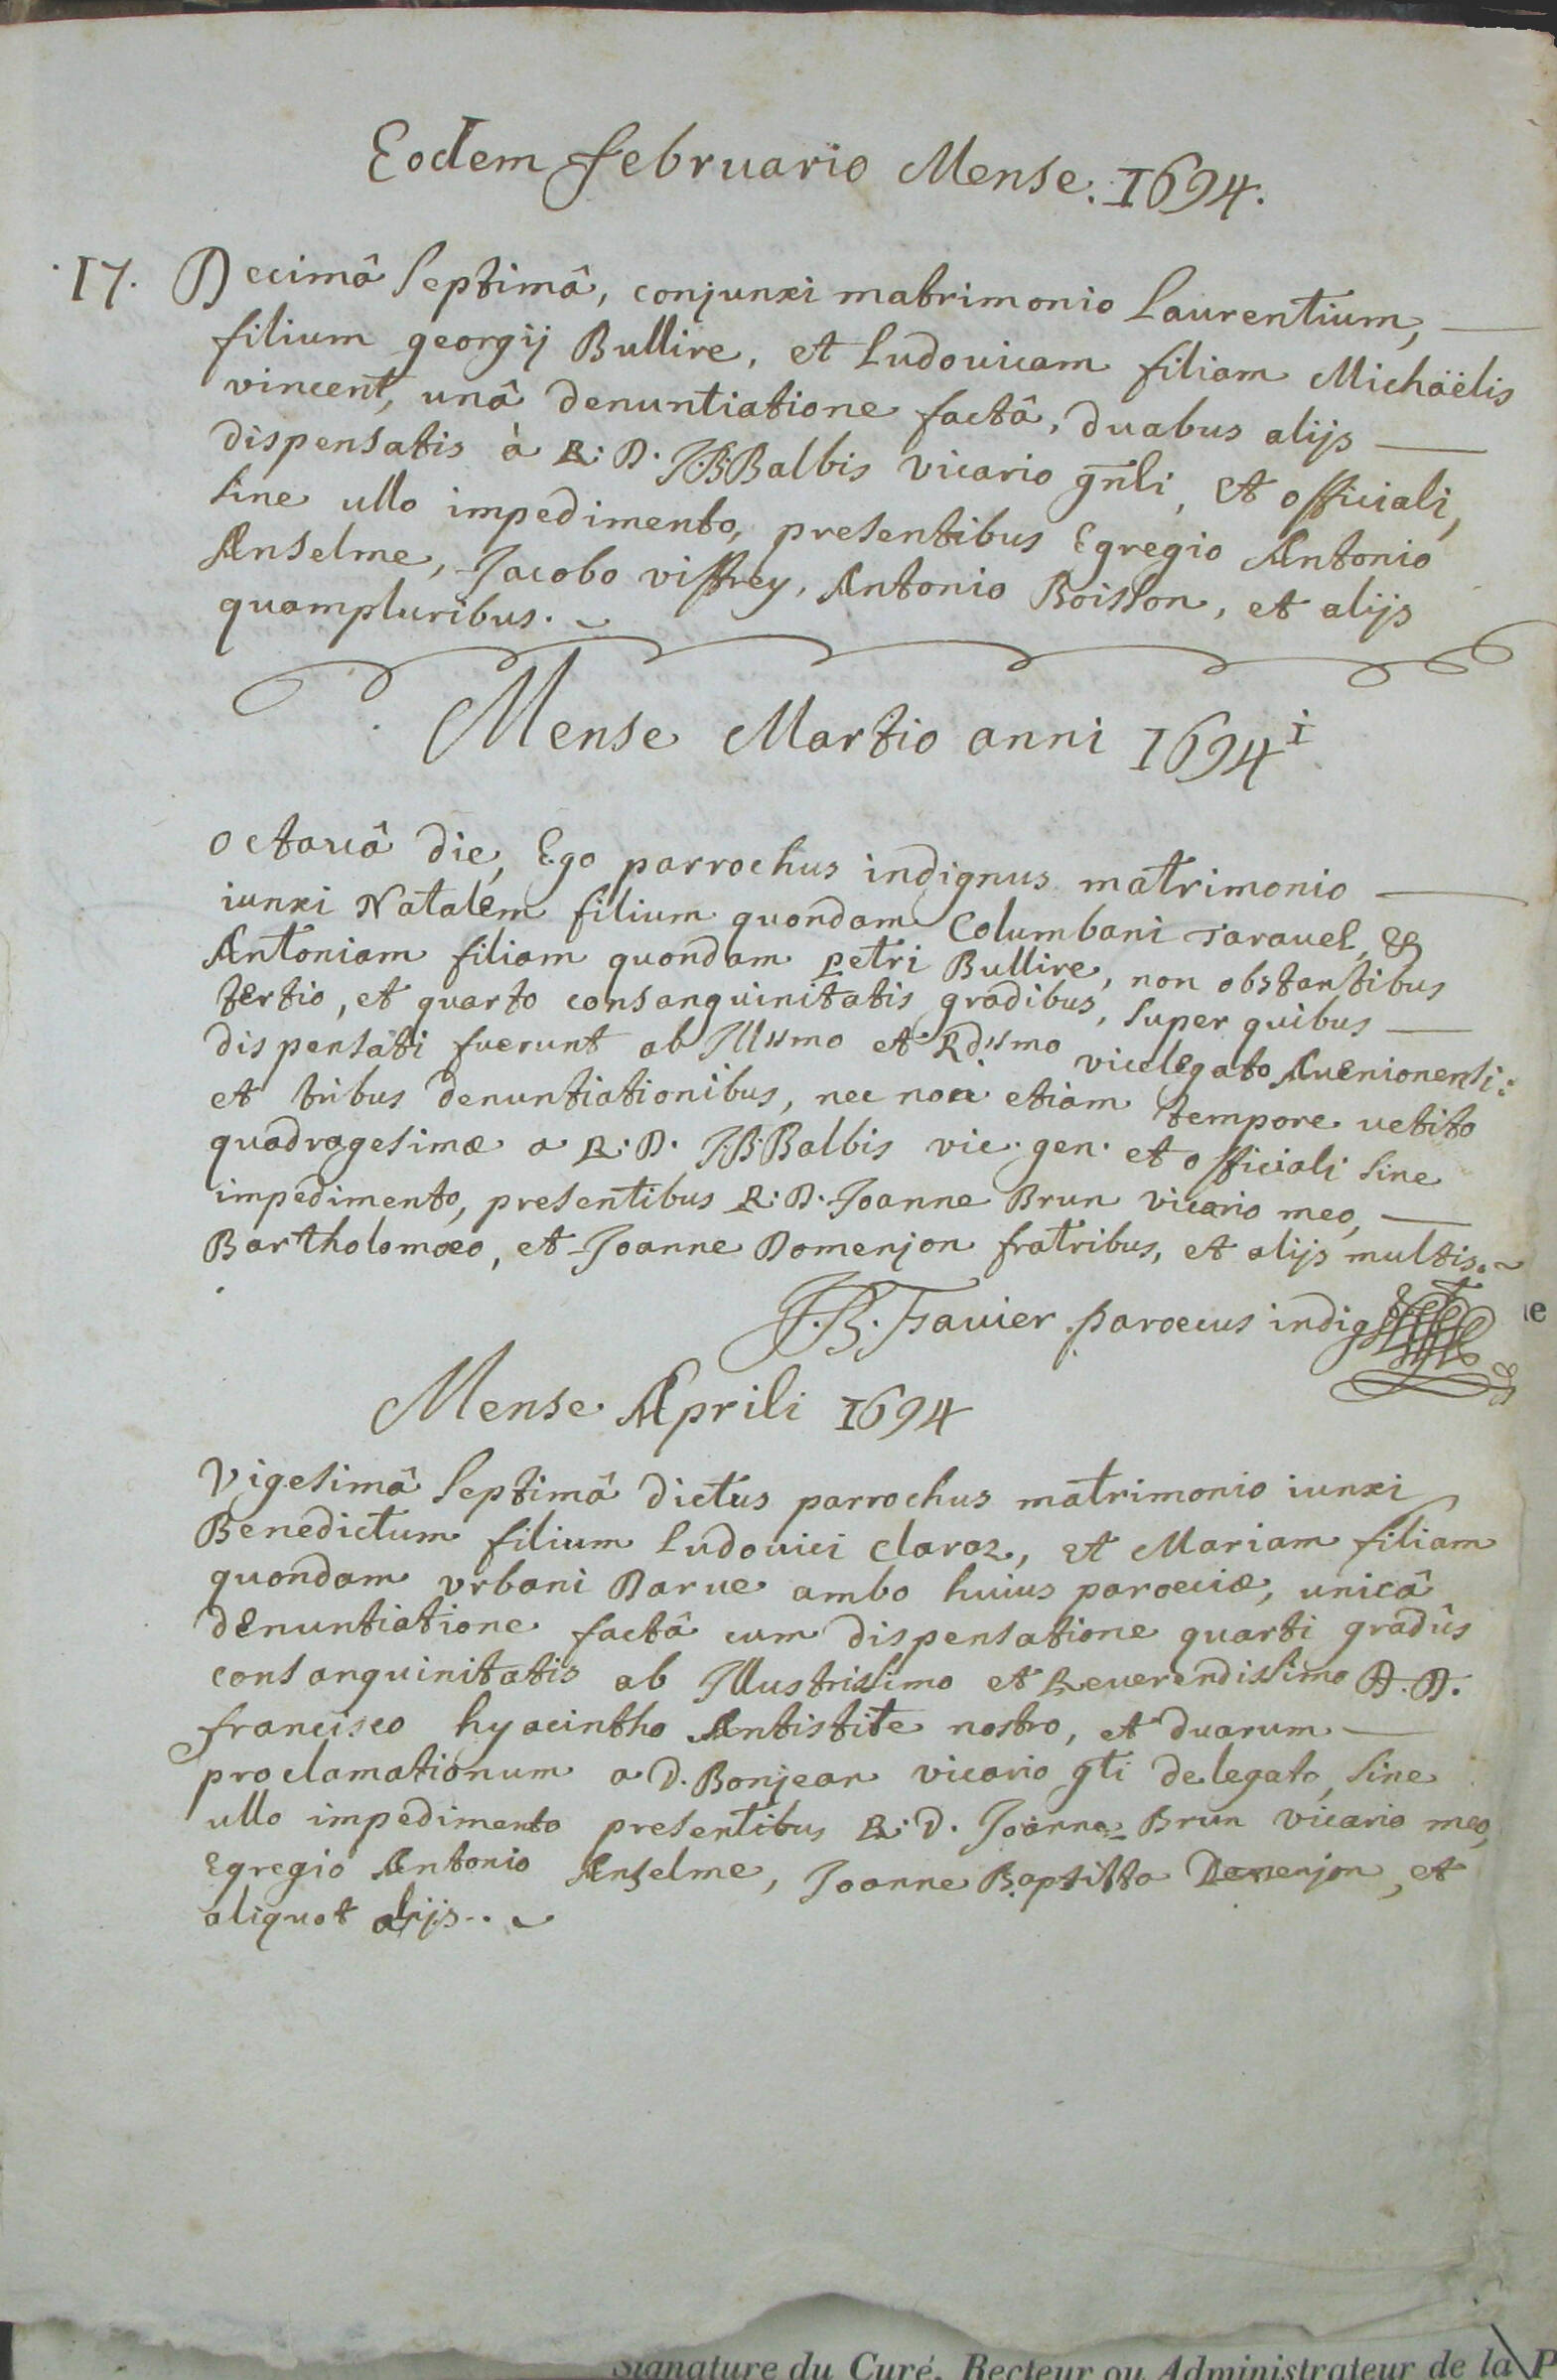 Eodem februario Mense. 1694.
17. Decimâ septimâ, conjunxi matrimonio Laurentium,
filium georgij Bullire, et Ludouicam filiam Michäelis
vincent, unâ denuntiatione factâ, duabus alijs
dispensatis à R: D. J:B: Balbis vicario gn̄li, et officiali,
sine ullo impedimento, presentibus Egregio Antonio
Anselme, Jacobo viffrey, Antonio Boisson, et alijs
quampluribus.
Mense Martio anni 1694 i
octauâ die, Ego parrochus indignus matrimonio
iunxi Natalem filium quondam Columbani Tarauel, &
Antoniam filiam quondam petri Bullire, non obstantibus
tertio, et quarto consanguinitatis gradibus, super quibus
dispensati fuerunt ab Illsmo et Rdsmo vicelegato Auenionensi:
et tribus denuntiationibus, nec non etiam tempore uetito
quadragesimæ a R: D. J:B: Balbis vic. gen. et officiali sine
impedimento, presentibus R: D. Joanne Brun vicario meo,
Bartholomæo, et Joanne Domenjon fratribus, et alijs multis.
J.B. Fauier paroecus indig
Mense Aprili 1694
Vigesimâ septimâ dictus parrochus matrimonio iunxi
Benedictum filium Ludouici Claraz, et Mariam filiam
quondam vrbani Darue ambo huius paroeciæ, unicâ
denuntiatione factâ cum dispensatione quarti gradûs
consanguinitatis ab Illustrissimo et Reuerendissimo D.D.
francisco hyacintho Antistite nostro, et duarum
proclamationum a D. Bonjean vicario gti delegato, sine
ullo impedimento presentibus R: D. Joanne Brun vicario meo,
Egregio Antonio Anselme, Joanne Baptista Domenjon, et
aliquot alijs..
Signature du Curé, Recteur ou Administrateur de la P